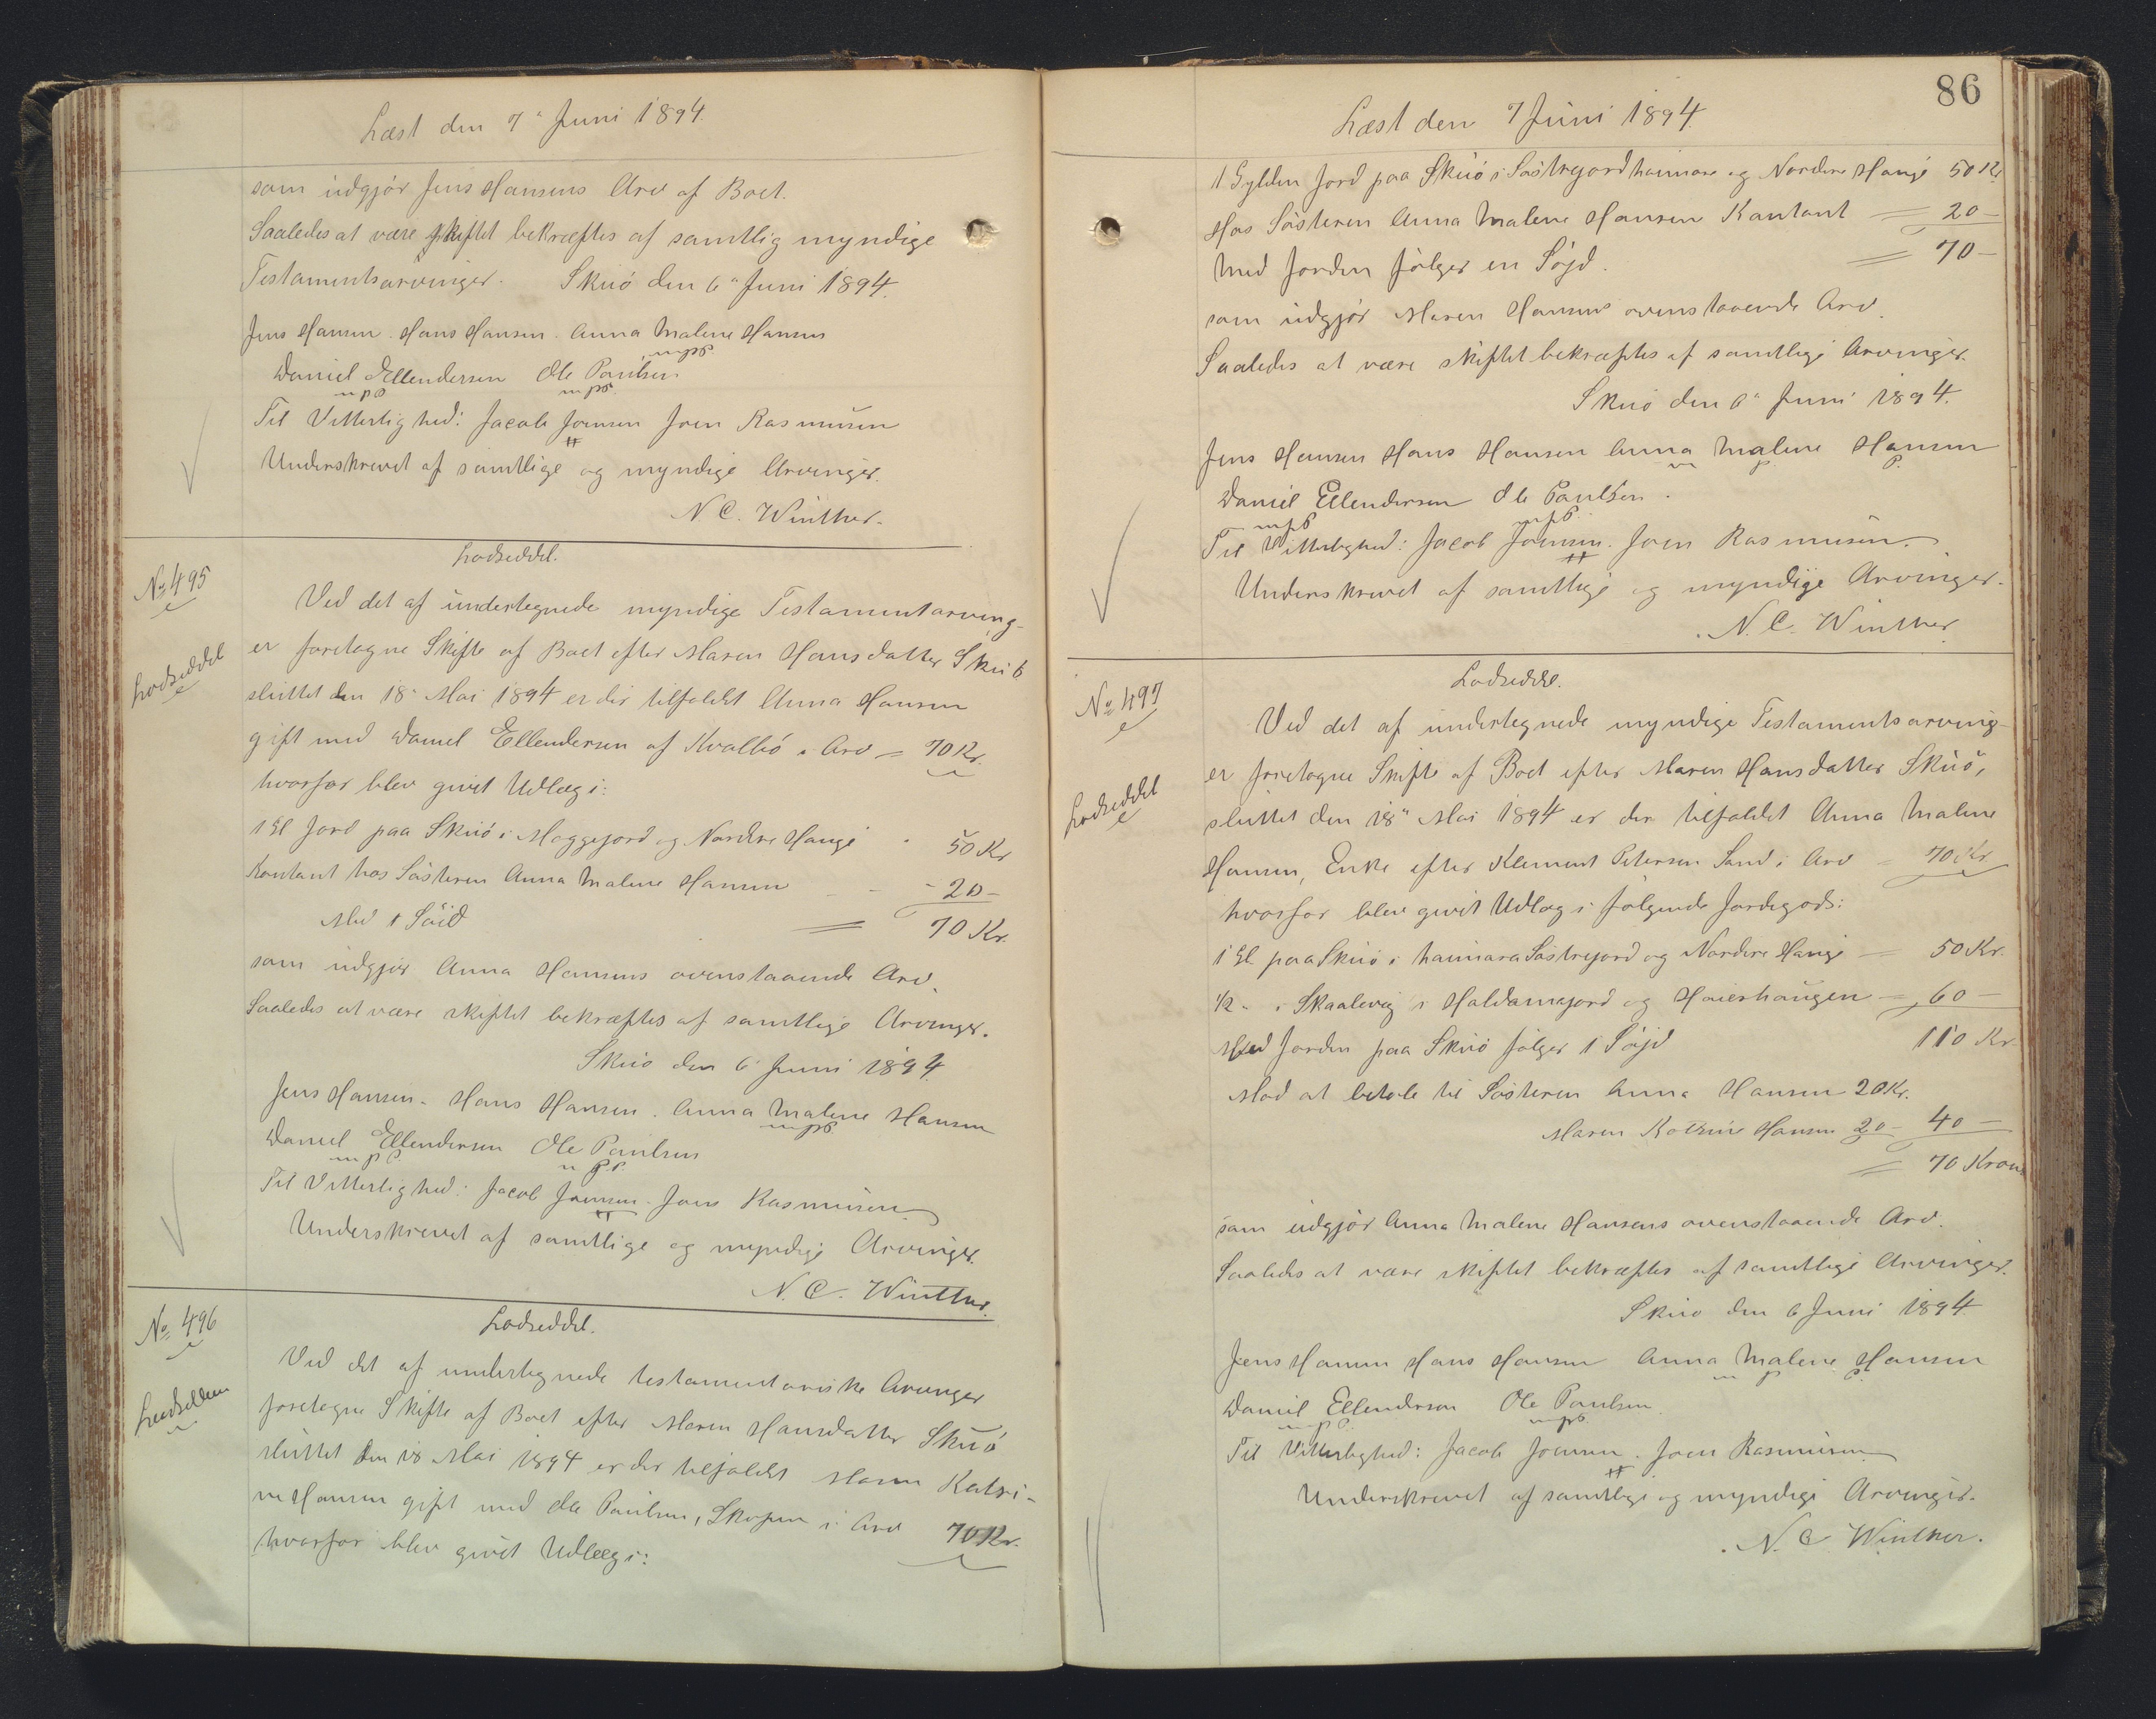 Læst den 7' Juni 1894.
som udgjör Jens Hansens Arv af Boet.
Saaledes at være skiftet bekræftes af samtlig myndige
Testamentsarvinger. Skuö den 6' Juni 1894.
Jens Hansen. Hans Hansen. Anna Malene Hansen
mpS.
Daniel Ellendersen Ole Poulsen
mpS mpS.
Til Vitterlighed: Jacob Joensen Joen Rasmusen
Underskrevet af samtlige og myndige Arvinger.
N C. Winther.
No 495
Lodseddel.
Lodseddel
Ved det af undertegnede myndige Testamentarving-
er foretagne Skifte af Boet efter Maren Hansdatter Skuö
sluttet den 18' Mai 1894 er der tilfaldet Anna Hansen
gift med Daniel Ellendersen af Kvalbö i Arv = 70 Kr.
hvorfor blev givet Udlæg i:
1 Gl Jord paa Skuö i Moggejord og Nordre Hauge " 50 Kr
Kontant hos Sösteren Anna Malene Hansen - - - 20 -
Med 1 Söid = 70 Kr.
som udgjör Anna Hansens ovenstaaende Arv.
Saaledes at være skiftet bekræftes af samtlige Arvinger.
Skuö den 6' Juni 1894
Jens Hansen. Hans Hansen. Anna Malene Hansen
mpS.
Daniel Ellendersen Ole Poulsen
Til Vitterlighed: Jacob Joensen. Joen Rasmusen
Underskrevet af samtlige og myndige Arvinger.
N. C. Winther.
No 496
Lodseddel.
Ved det af undertegnede testamentariske Arvinger
foretagne Skifte af Boet efter Maren Hansdatter Skuö
sluttet den 18 Mai 1894 er der tilfaldet Maren Katri-
ne Hansen gift med Ole Poulsen, Skopen i Arv 70 Kr.
hvorfor blev givet Udlæg i:
86
Læst den 7 Juni 1894.
1 Gylden Jord paa Skuö i Söstrejord haimare og Nordere Hauge 50 Kr
Hos Sösteren Anna Malene Hansen Kontant = 20 -
Med Jorden fölger en Söjd. = 70 -
som udgjör Maren Hansens ovenstaaende Arv.
Saaledes at være skiftet bekræftes af samtlige Arvinger.
Skuö den 6' Juni 1894.
Jens Hansen Hans Hansen Anna Malene Hansen
m p S.
Daniel Ellendersen Ole Poulsen.
mpS mpS.
Til Vitterlighed: Jacob Joensen. Joen Rasmusen.
Underskrevet af samtlige og myndige Arvinger.
N. C. Winther
No 497
Lodseddel.
Lodseddel
Ved det af undertegnede myndige Testamentsarving-
er foretagne Skifte af Boet efter Maren Hansdatter Skuö,
sluttet den 18" Mai 1894 er der tilfaldet Anna Malene
Hansen, Enke efter Klement Petersen Sand i Arv = 70 Kr
hvorfor blev givet Udlæg i fölgende Jordegods:
1 Gl paa Skuö i haimara Söstrejord og Nordere Hauge = 50 Kr.
1/2 " i Skaalevig i Haldamajord og Haierhaugen = 60 -
Med Jorden paa Skuö fölger 1 Söjd 110 Kr
Mod at betale til Sösteren Anna Hansen 20 Kr.
Maren Katrine Hansen 20 - 40 -
= 70 Kroner
som udgjör Anna Malene Hansens ovenstaaende Arv.
Saaledes at være skiftet bekræftes af samtlige Arvinger.
Skuö den 6 Juni 1894
Jens Hansen Hans Hansen Anna Malene Hansen
m p S.
Daniel Ellendersen Ole Poulsen
mpS. mpS.
Til Vitterlighed: Jacob Joensen. Joen Rasmusen
Underskrevet af samtlige og myndige Arvinger.
N. C Winther.